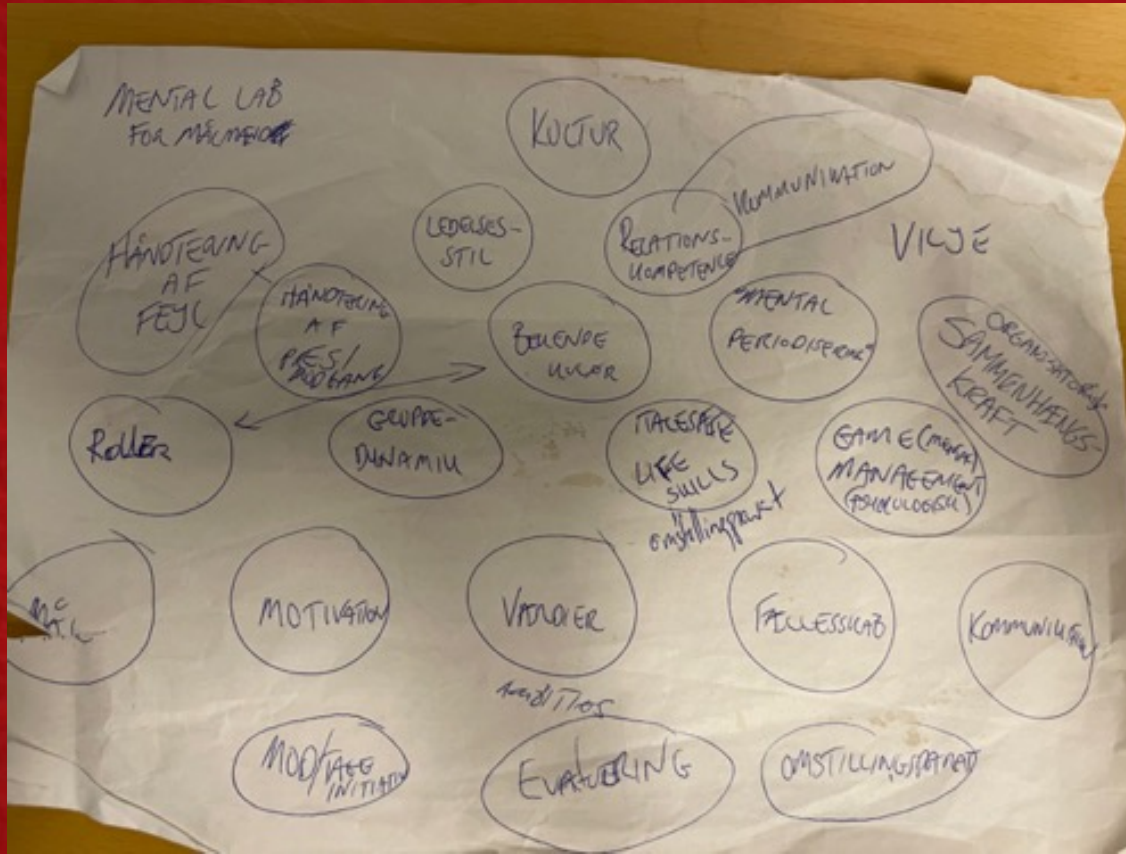 MENTAL LAB
FOR
KULTUR
KOMMUNIKATION
HÅNDTERING
AF
FEJL
LEDELSES-
STIL
RELATIONS-
KOMPETENCE
VILJE
HÅNDTERING
AF
PRES/
MODGANG
"MENTAL
PERIODISERING"
ORGANISATORISK
SAMMENHÆNGS-
KRAFT
ROLLER
GRUPPE-
DYNAMIK
LIFE
SKILLS
GAME (MENTAL)
MANAGEMENT
(PSYKOLOGISK)
omstillingsparat
MÅL
MOTIVATION
VÆRDIER
FÆLLESSKAB
KOMMUNIKATION
MOD/TAGE
INITIATIV
EVALUERING
OMSTILLINGSPARAT